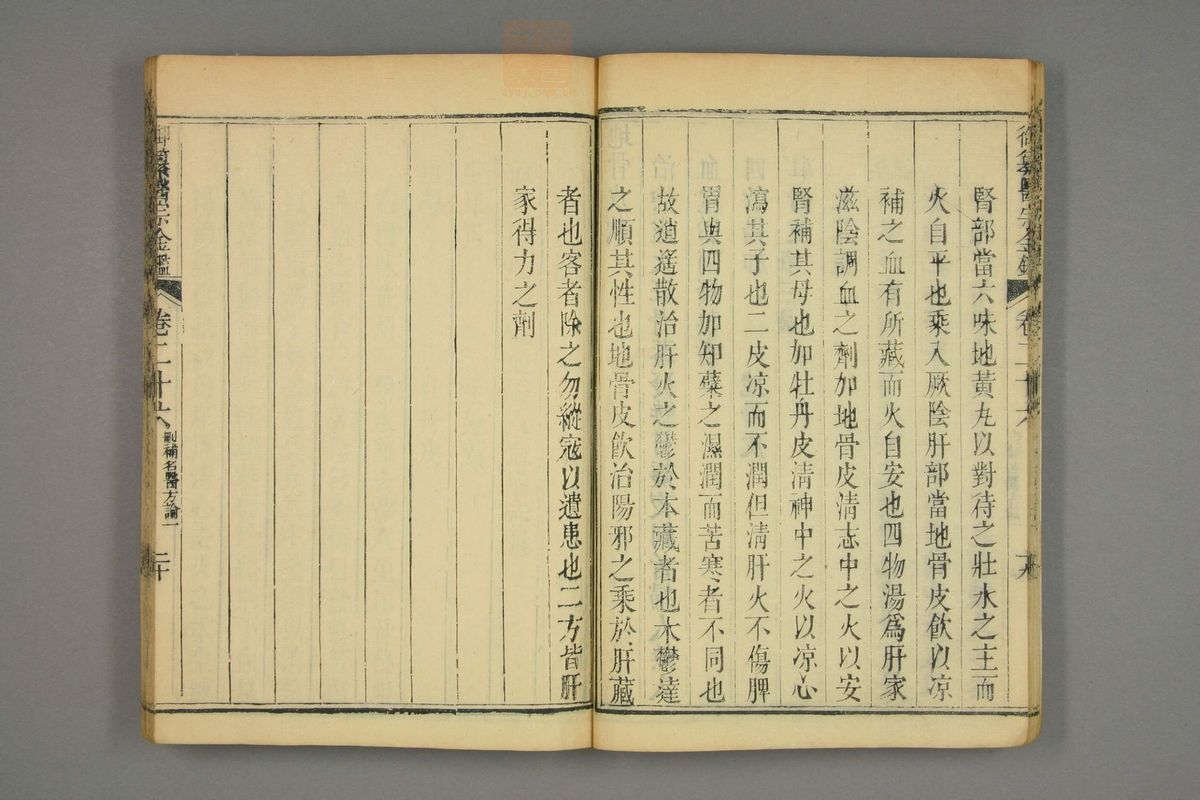 御纂醫宗金鑑
卷二十六
腎部當六味地黃丸以對待之壯水之主而
火自平也乘入厥陰肝部當地骨皮飲以凉
補之血有所藏而火自安也四物湯爲肝家
滋陰調血之劑加地骨皮淸志中之火以安
腎補其母也加牡丹皮淸神中之火以凉心
瀉其子也二皮凉而不潤但淸肝火不傷脾
胃與四物加知蘗之濕潤而苦寒者不同也
故逍遙散治肝火之鬱於本藏者也木鬱達
之順其性也地骨皮飲治陽邪之乘於肝藏
者也客者除之勿縱寇以遺患也二方皆肝
家得力之劑
御纂醫宗金鑑
卷二十六
刪補名醫方論一
二十